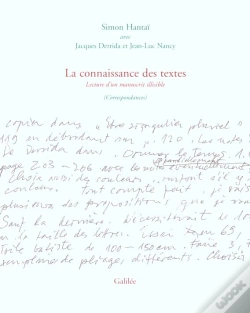 Simon Hantaï
avec
Jacques Derrida et Jean-Luc Nancy
La connaissance des textes
Lecture d'un manuscrit illisible
(Correspondances)
copier dans « Être singulier pluriel »
119 en débordant sur p. 120. Les notes
De Derrida dans
page 203 - 206 avec
Choix aussi des couleurs,
couleur. Tout compte fait, je vais
plusieurs des propositions que je
Sauf la dernière. Nécessiterait
la taille des lettres. Essai
de 100 - 150 am. Faire 3,
exemplaires de pliages différents. Choisi
Galilée
wook